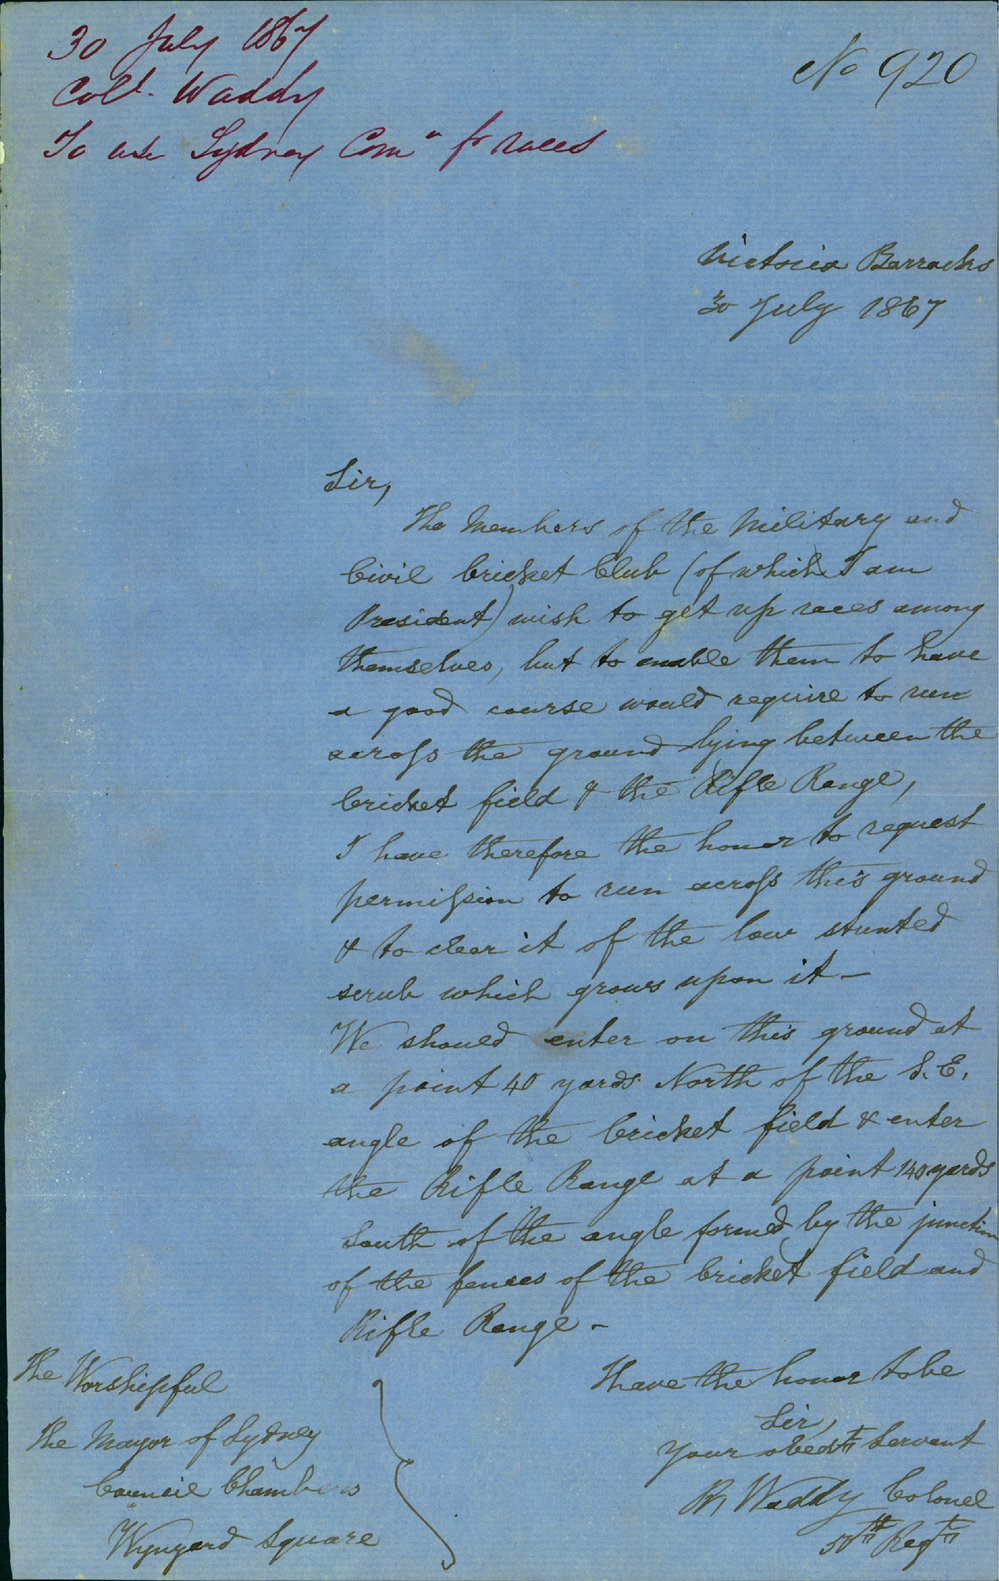 30 July 1867
Coll. Waddy
To use Sydney Comn for races
No 920
Victoria Barracks
30 July 1867
Sir,
The Members of the Military and
Civil Cricket Club (of which I am
President) wish to get up races among
themselves, but to enable them to have
a good course would require to run
across the ground lying between the
Cricket field & the Rifle Range,
I have therefore the honor to request
permission to run across this ground
& to clear it of the low stunted
scrub which grows upon it—
We should enter on this ground at
a point 40 yards North of the S.E.
angle of the Cricket field & enter
the Rifle Range at a point 140 yards
South of the angle formed by the junction
of the fences of the Cricket field and
Rifle Range—
I have the honor to be
Sir,
Your obedt Servant
R Waddy Colonel
50th Regt
The Worshipful
The Mayor of Sydney
Council Chambers
Wynyard Square